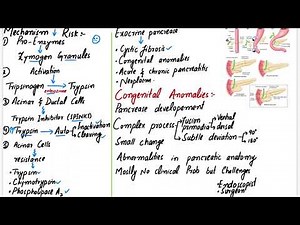 Mechanism Risk:-
1) Pro-Enzymes
Zymogen Granules
Activation
Trypsinogen → Trypsin
2) Acinar & Ductal Cells
Trypsin Inhibitor (SPINK1)
3) ↑Trypsin → Auto Inactivation
cleaving
4) Acinar Cells
resistance
• Trypsin
• Chymotrypsin
• Phospholipase A2
Exocrine pancreas
• Cystic fibrosis
• Congenital anomalies
• Acute & chronic pancreatitis
• Neoplasm
Congenital Anomalies:-
Pancreas development
Complex process → fusion Ventral
primordia dorsal
Small change → Subtle deviation → 90°
180°
Abnormalities in pancreatic anatomy
Mostly No clinical Prob but Challenges
Endoscopist
• Surgeon